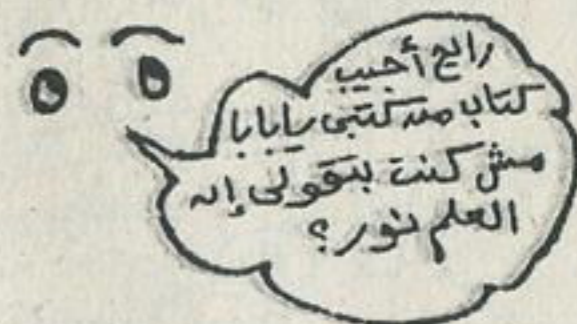 رايح أجيب
كتاب من كتبى يابابا
مش كنت بتقولى إن
العلم نور؟